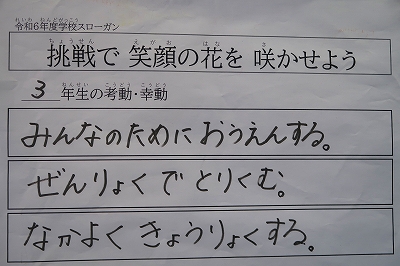 令和6年度学校スローガン
挑戦で 笑顔の花を 咲かせよう
3年生の考動・幸動
みんなのために おうえんする。
ぜんりょくで とりくむ。
なかよく きょうりょくする。